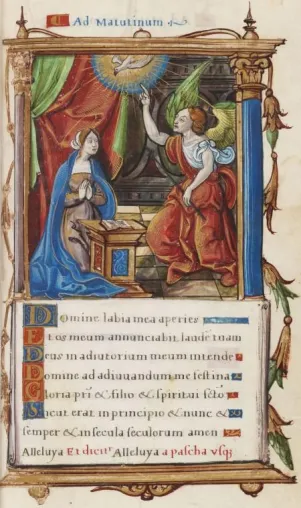 Ad Matutinum
Domine labia mea aperies
Et os meum annunciabit laudē tuam
Deus in adiutorium meum intende
Domine ad adiuuandum me festina
Gloria pr̄i & filio & spiritui sctō
Sicut erat in principio & nunc &
semper & in secula seculorum amen
Alleluya Et dicit᷑ Alleluya a pascha usq̄